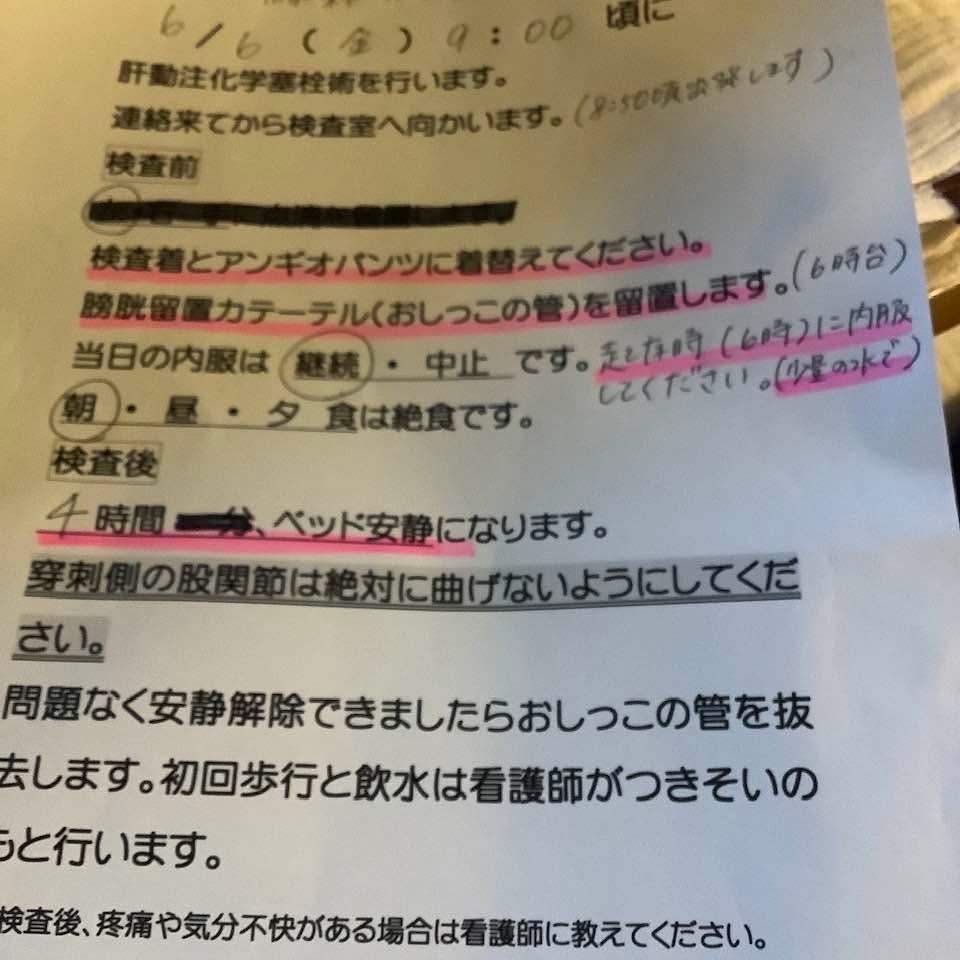 6/6(金)9:00 頃に
肝動注化学塞栓術を行います。
連絡来てから検査室へ向かいます。(8:50頃出発します)
検査前
検査着とアンギオパンツに着替えてください。
膀胱留置カテーテル(おしっこの管)を留置します。(6時台)
当日の内服は 継続・中止 です。起床時(6時)に内服
してください。(少量の水で)
朝・昼・夕 食は絶食です。
検査後
4時間 分、ベッド安静になります。
穿刺側の股関節は絶対に曲げないようにしてくだ
さい。
問題なく安静解除できましたらおしっこの管を抜
去します。初回歩行と飲水は看護師がつきそいの
もと行います。
検査後、疼痛や気分不快がある場合は看護師に教えてください。